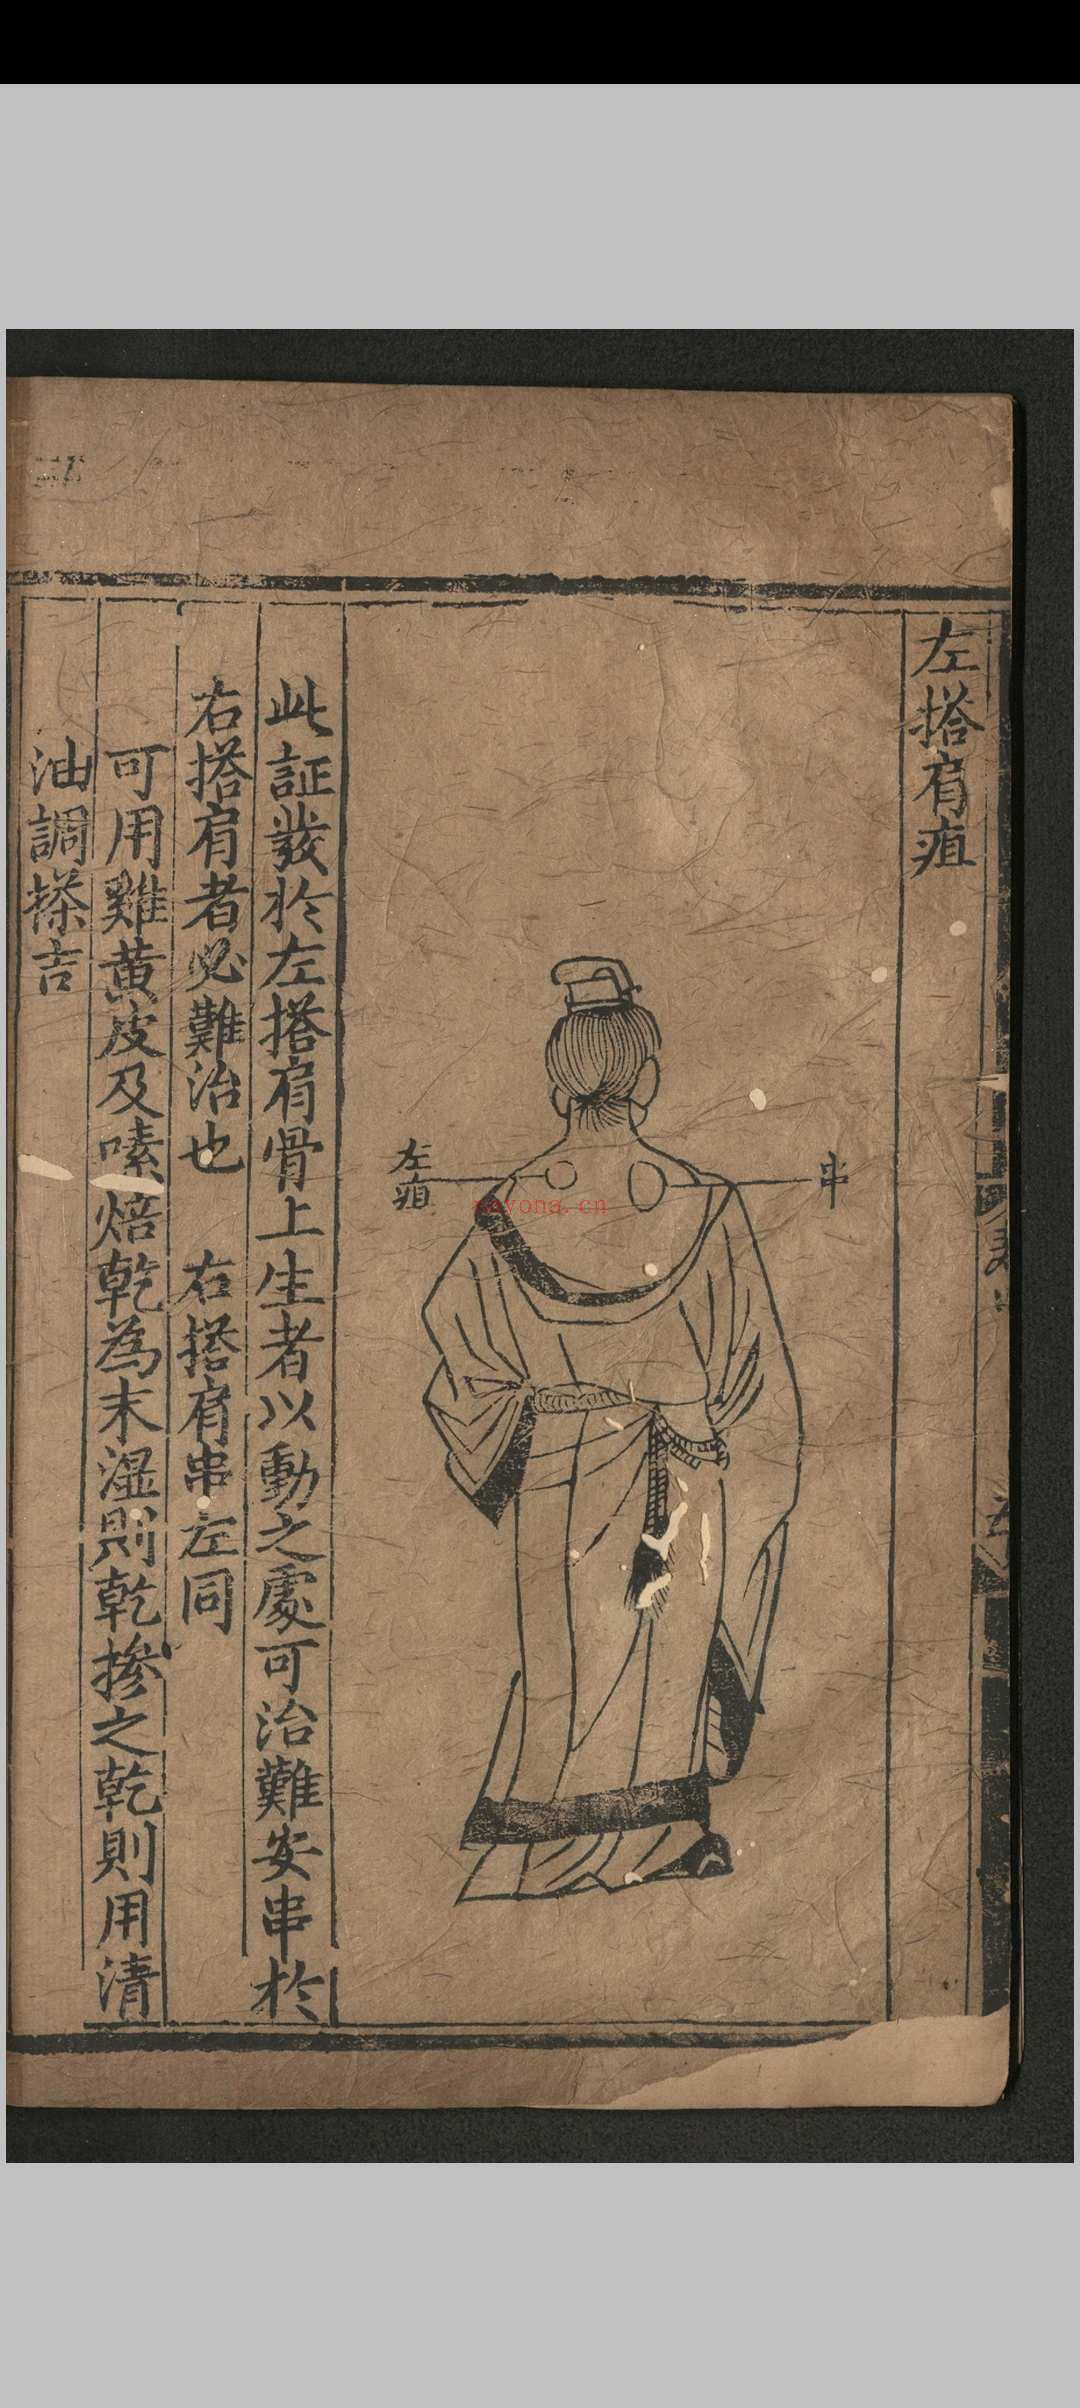 左搭肩疽
左疽
串
此証發於左搭肩骨上生者以動之處可治難安串於
右搭肩者必難治也　右搭肩串左同
可用雞黃皮及嗉焙乾為末濕則乾摻之乾則用清
油調搽吉
nayona.cn